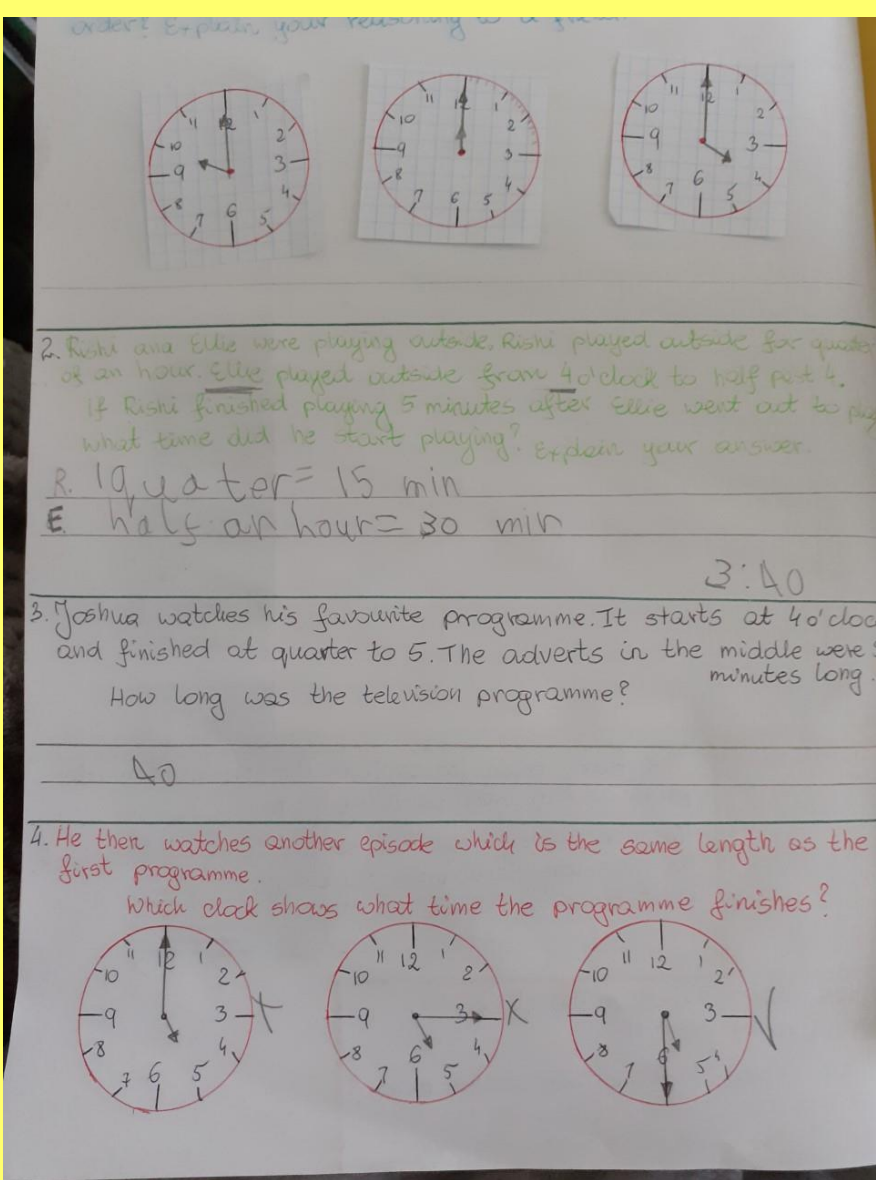 order? Explain your reasoning to a
11 12 1
10 2
9 3
8 4
7 6 5
11 12 1
10 2
9 3
8 4
7 6 5
11 12 1
10 2
9 3
8 4
7 6 5
2. Rishi and Ellie were playing outside. Rishi played outside for
of an hour. Ellie played outside from 4 o'clock to half past 4.
If Rishi finished playing 5 minutes after Ellie went out to
what time did he start playing? Explain your answer.
R. 1quater= 15 min
E. half an hour= 30 min
3:40
3. Joshua watches his favourite programme. It starts at 4 o'cloc
and finished at quarter to 5. The adverts in the middle were
minutes long.
How long was the television programme?
40
4. He then watches another episode which is the same length as the
first programme.
Which clock shows what time the programme finishes?
11 12 1
10 2
9 3
8 4
7 6 5
11 12 1
10 2
9 3
8 4
7 6 5
11 12 1
10 2
9 3
8 4
7 6 5